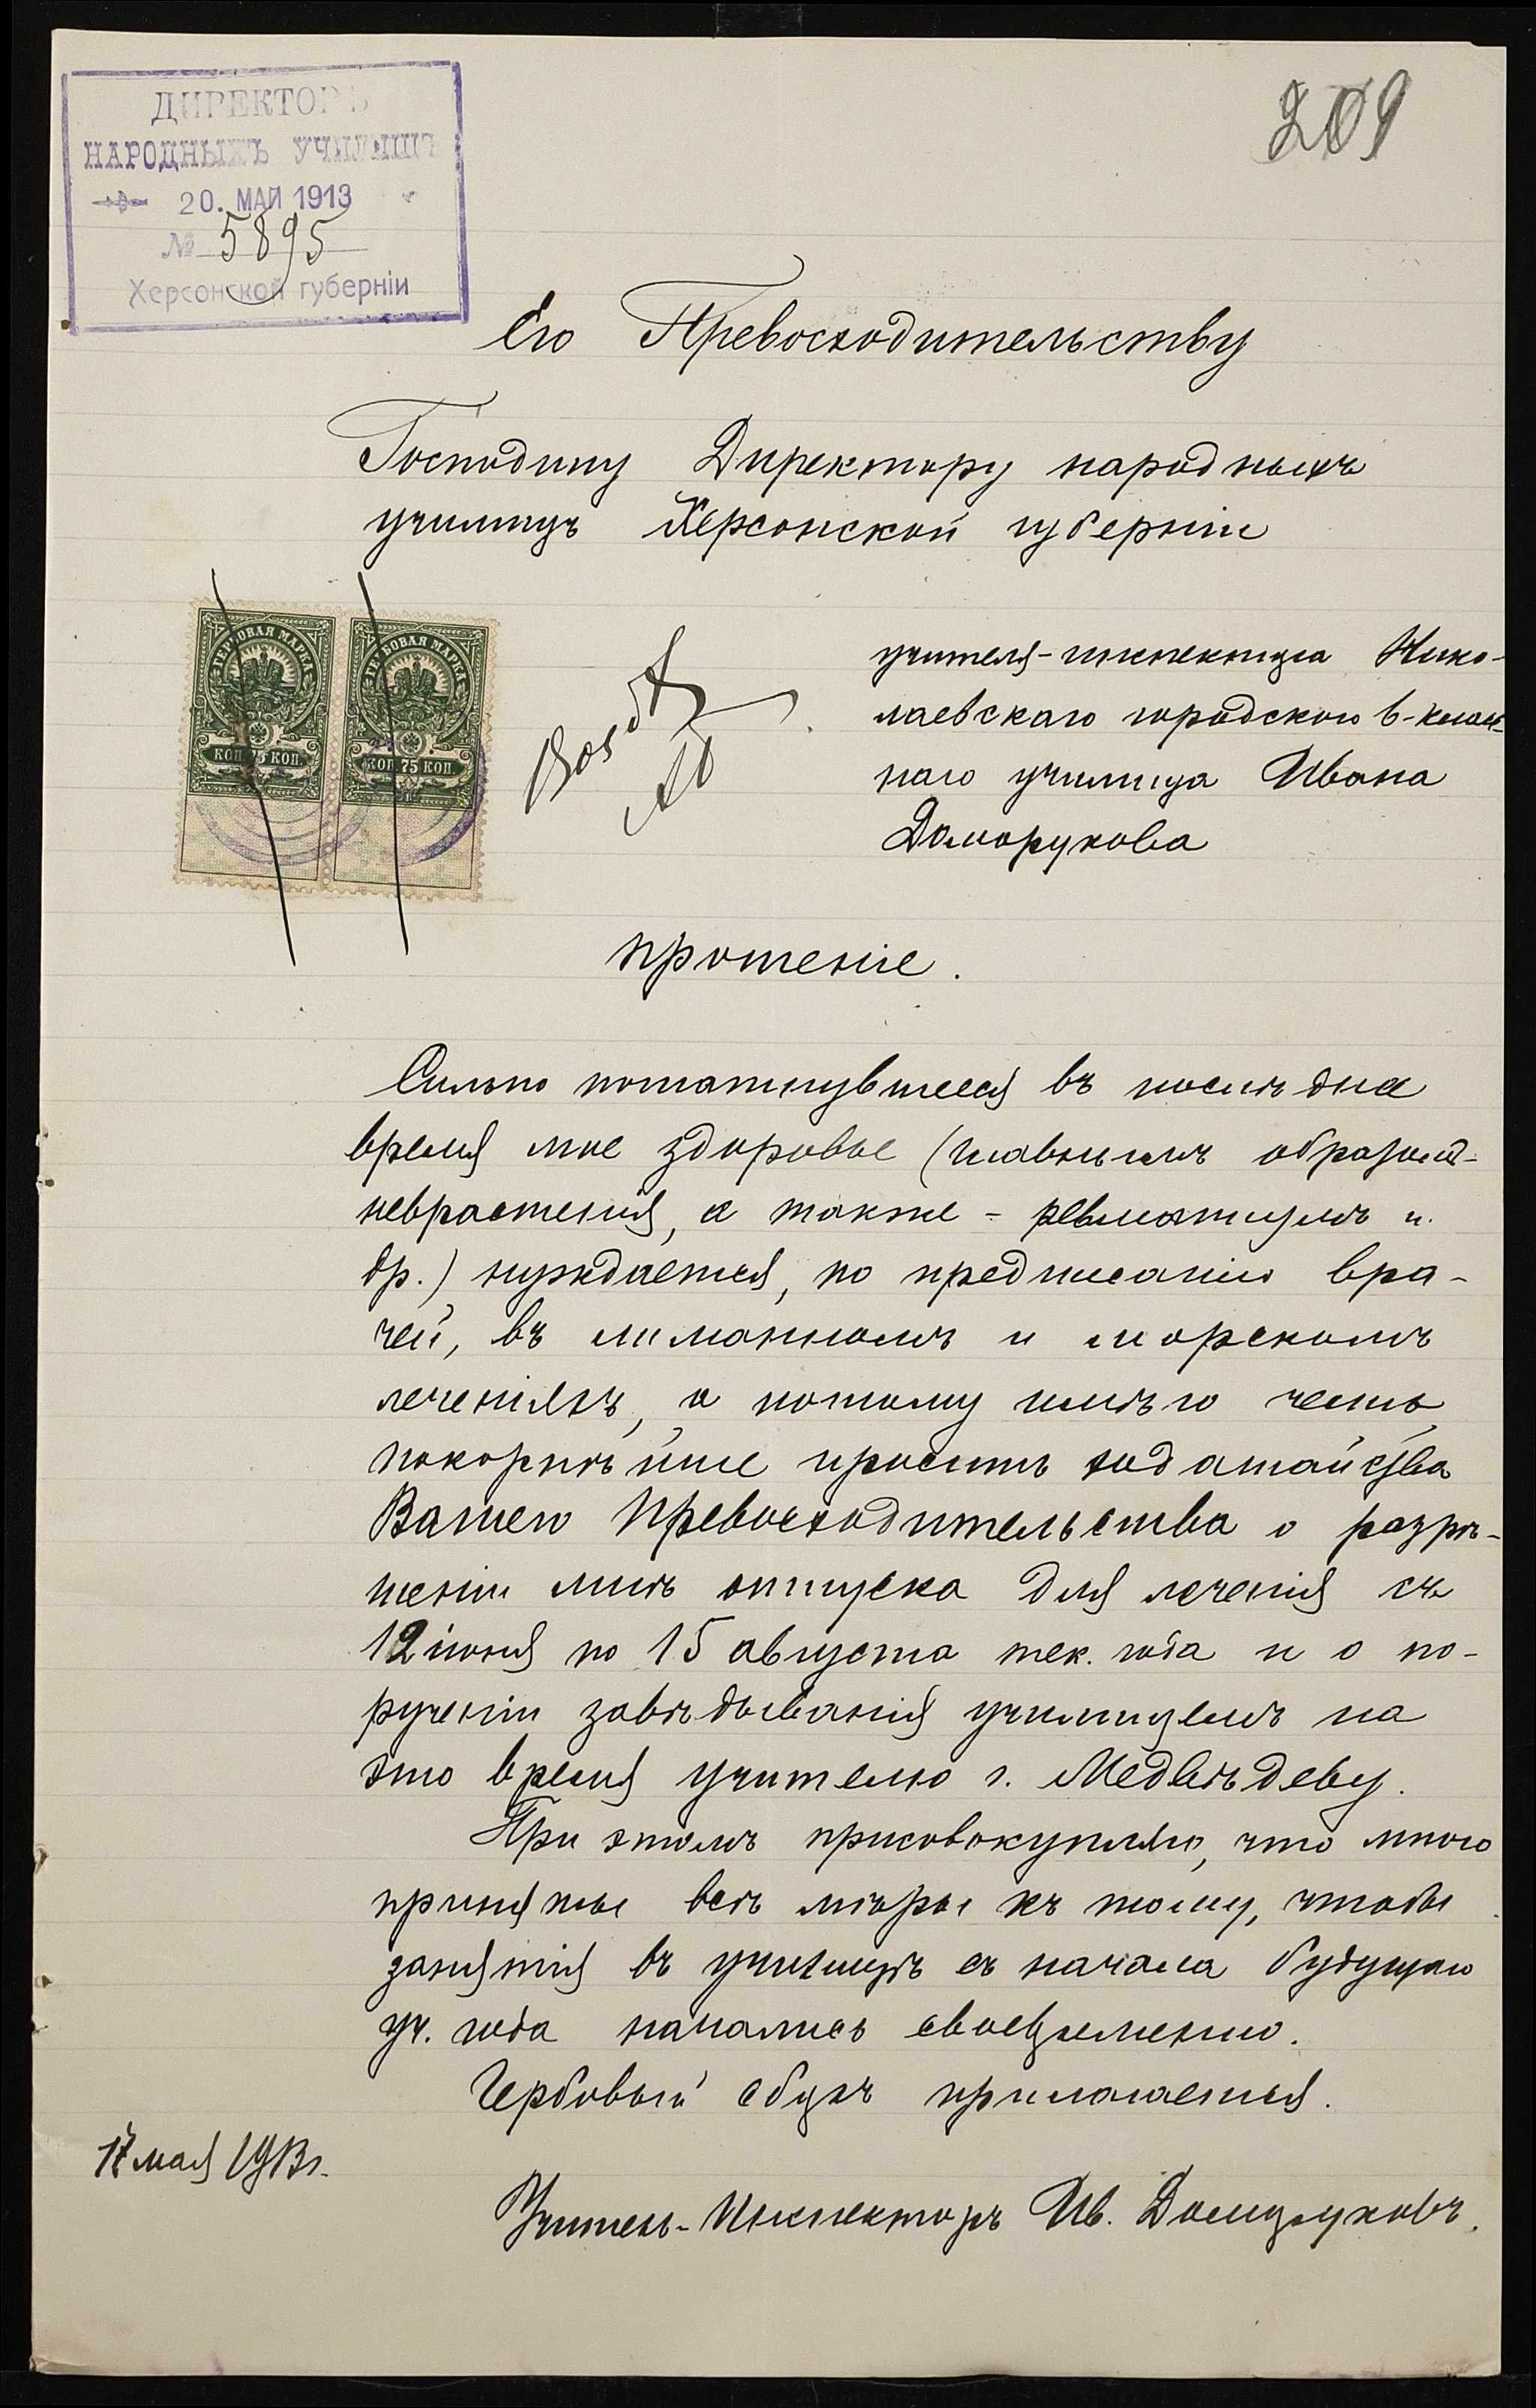 ДИРЕКТОРЪ
НАРОДНЫХЪ УЧИЛИЩЪ
20. МАЙ 1913
№ 5895
Херсонской губерніи
209
Его Превосходительству
Господину Директору народныхъ
училищъ Херсонской губерніи
ГЕРБОВАЯ МАРКА
КОП. 75 КОП.
ГЕРБОВАЯ МАРКА
КОП. 75 КОП.
учителя-инспектора Нико-
лаевскаго городского 6-клас-
наго училища Ивана
Доморукова
прошеніе.
Сильно пошатнувшееся въ послѣднее
время мое здоровье (главнымъ образомъ-
неврастенія, а также - ревматизмъ и
др.) нуждается, по предписанію вра-
чей, въ лиманномъ и морскомъ
леченіяхъ, а потому имѣю честь
покорнѣйше просить ходатайства
Вашего Превосходительства о разрѣ-
шеніи мнѣ отпуска для леченія съ
12 іюня по 15 августа тек. года и о по-
рученіи завѣдыванія училищемъ на
это время учителю г. Медвѣдеву.
При этомъ присовокупляю, что мною
приняты всѣ мѣры къ тому, чтобы
занятія въ училищѣ съ начала будущаго
уч. года начались своевременно.
Гербовый сборъ прилагается.
17 мая 1913 г.
Учитель-Инспекторъ Ив. Доморуковъ.